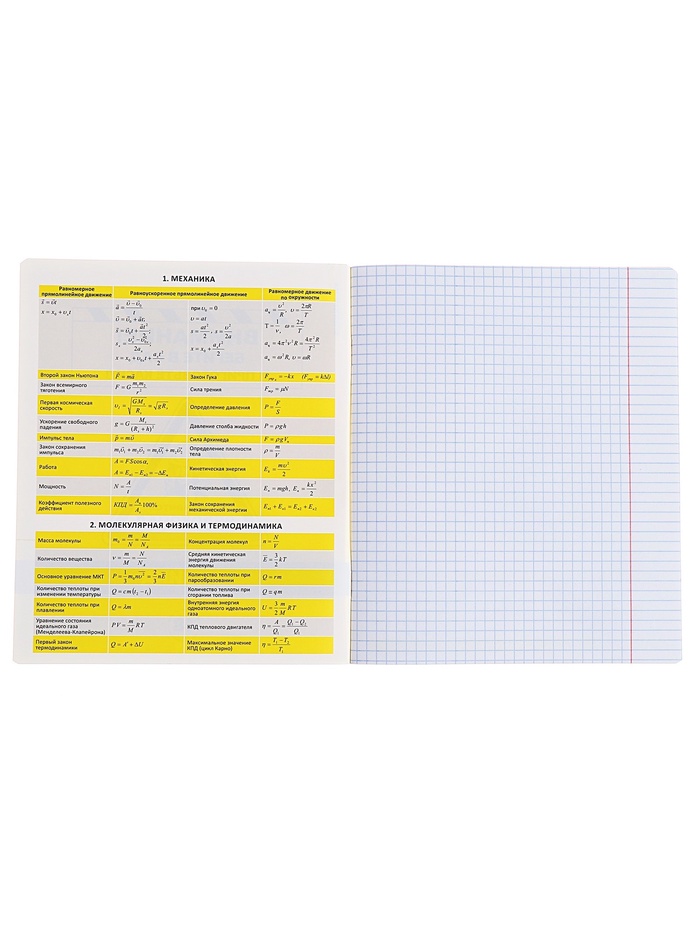 1. МЕХАНИКА
Равномерное прямолинейное движение
Равноускоренное прямолинейное движение
Равномерное движение по окружности
s⃗ = υ⃗t
x = x₀ + υₓt
a⃗ = (υ⃗ − υ⃗₀)/t
υ⃗ = υ⃗₀ + a⃗t,
s⃗ = υ⃗₀t + a⃗t²/2
x = x₀ + υ₀ₓt + aₓt²/2
при υ₀ = 0
υ = at
s = at²/2, s = υ²/2a
x = x₀ + aₓt²/2
aₙ = υ²/R, υ = 2πR/T
T = 1/ν, ω = 2π/T
aₙ = 4π²ν²R = 4π²R/T²
aₙ = ω²R, υ = ωR
Второй закон Ньютона F⃗ = ma⃗ Закон Гука
Закон всемирного тяготения F = G m₁m₂/r² Сила трения Fтр = μN
Первая космическая скорость Определение давления P = F/S
Ускорение свободного падения Давление столба жидкости P = ρgh
Импульс тела p⃗ = mυ⃗ Сила Архимеда
Закон сохранения импульса m₁υ⃗₁ + m₂υ⃗₂ = m₁υ⃗₁ + m₂υ⃗₂ Определение плотности тела ρ = m/V
Работа A = FScosα, Кинетическая энергия Eₖ = mυ²/2
Мощность N = A/t Потенциальная энергия Eₙ = mgh, Eₙ = kx²/2
Коэффициент полезного действия Закон сохранения механической энергии
2. МОЛЕКУЛЯРНАЯ ФИЗИКА И ТЕРМОДИНАМИКА
Масса молекулы m₀ = m/N = M/Nₐ Концентрация молекул n = N/V
Количество вещества ν = m/M = N/Nₐ Средняя кинетическая энергия движения молекулы E̅ = 3/2 kT
Основное уравнение МКТ P = 1/3 m₀nυ̅² = 2/3 nE̅ Количество теплоты при парообразовании Q = rm
Количество теплоты при изменении температуры Q = cm(t₂ − t₁) Количество теплоты при сгорании топлива Q = qm
Количество теплоты при плавлении Q = λm Внутренняя энергия одноатомного идеального газа U = 3/2 m/M RT
Уравнение состояния идеального газа (Менделеева-Клапейрона) PV = m/M RT КПД теплового двигателя η = A/Q₁ = (Q₁ − Q₂)/Q₁
Первый закон термодинамики Q = A' + ΔU Максимальное значение КПД (цикл Карно) η = (T₁ − T₂)/T₁